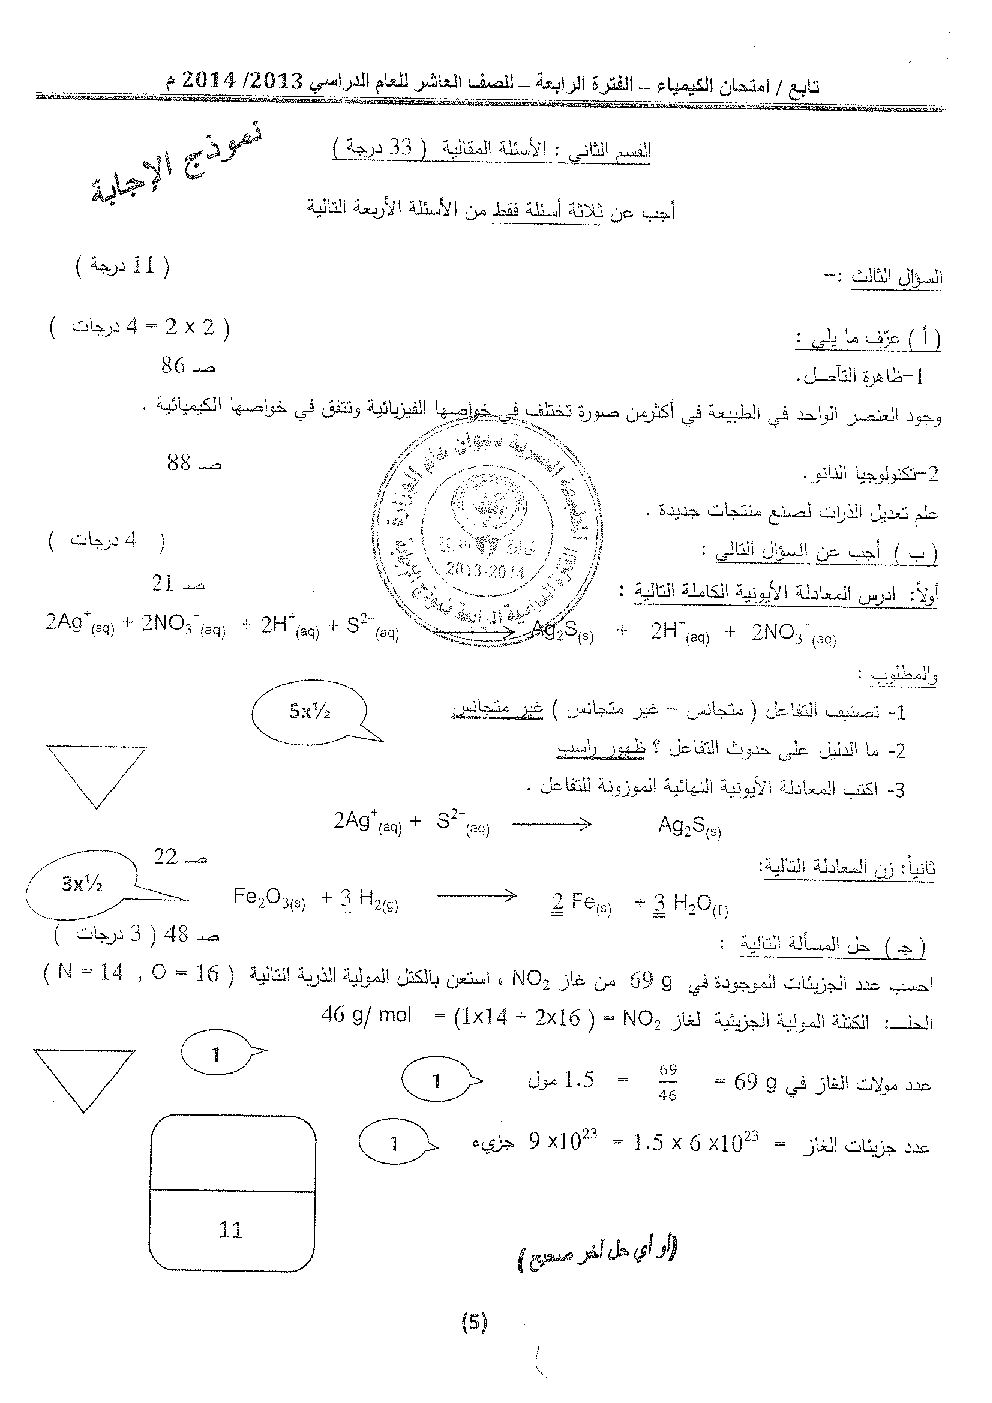 تابع / امتحان الكيمياء – الفترة الرابعة – للصف العاشر للعام الدراسي 2013/ 2014 م
نموذج الإجابة
القسم الثاني : الأسئلة المقالية ( 33 درجة )
أجب عن ثلاثة أسئلة فقط من الأسئلة الأربعة التالية
السؤال الثالث :– ( 11 درجة )
( أ ) عرّف ما يلي : ( 2 x 2 = 4 درجات )
1–ظاهرة التآصل. صـ 86
وجود العنصر الواحد في الطبيعة في أكثرمن صورة تختلف في خواصها الفيزيائية وتتفق في خواصها الكيميائية .
2–تكنولوجيا النانو. صـ 88
علم تعديل الذرات لصنع منتجات جديدة .
( ب ) أجب عن السؤال التالي : ( 4 درجات )
أولاً: ادرس المعادلة الأيونية الكاملة التالية : صـ 21
2Ag⁺(aq) + 2NO₃⁻(aq) + 2H⁺(aq) + S²⁻(aq) ⟶ Ag₂S(s) + 2H⁺(aq) + 2NO₃⁻(aq)
والمطلوب :
1- تصنيف التفاعل ( متجانس – غير متجانس ) غير متجانس
5x½
2- ما الدليل على حدوث التفاعل ؟ ظهور راسب
3- اكتب المعادلة الأيونية النهائية الموزونة للتفاعل .
2Ag⁺(aq) + S²⁻(aq) ⟶ Ag₂S(s)
ثانياً: زن المعادلة التالية: صـ 22
3x½
Fe₂O₃(s) + 3 H₂(g) ⟶ 2 Fe(s) + 3 H₂O(l)
( جـ ) حل المسألة التالية : صـ 48 ( 3 درجات )
احسب عدد الجزيئات الموجودة في 69 g من غاز NO₂ ، استعن بالكتل المولية الذرية التالية ( N = 14 , O = 16 )
الحلـ: الكتلة المولية الجزيئية لغاز NO₂ = (1x14 + 2x16 ) = 46 g/ mol
1
عدد مولات الغاز في 69 g = 69/46 = 1.5 مول
1
عدد جزيئات الغاز = 1.5 x 6 x10²³ = 9 x10²³ جزيء
1
11
(أو أي حل آخر صحيح)
(5)
2013-2014